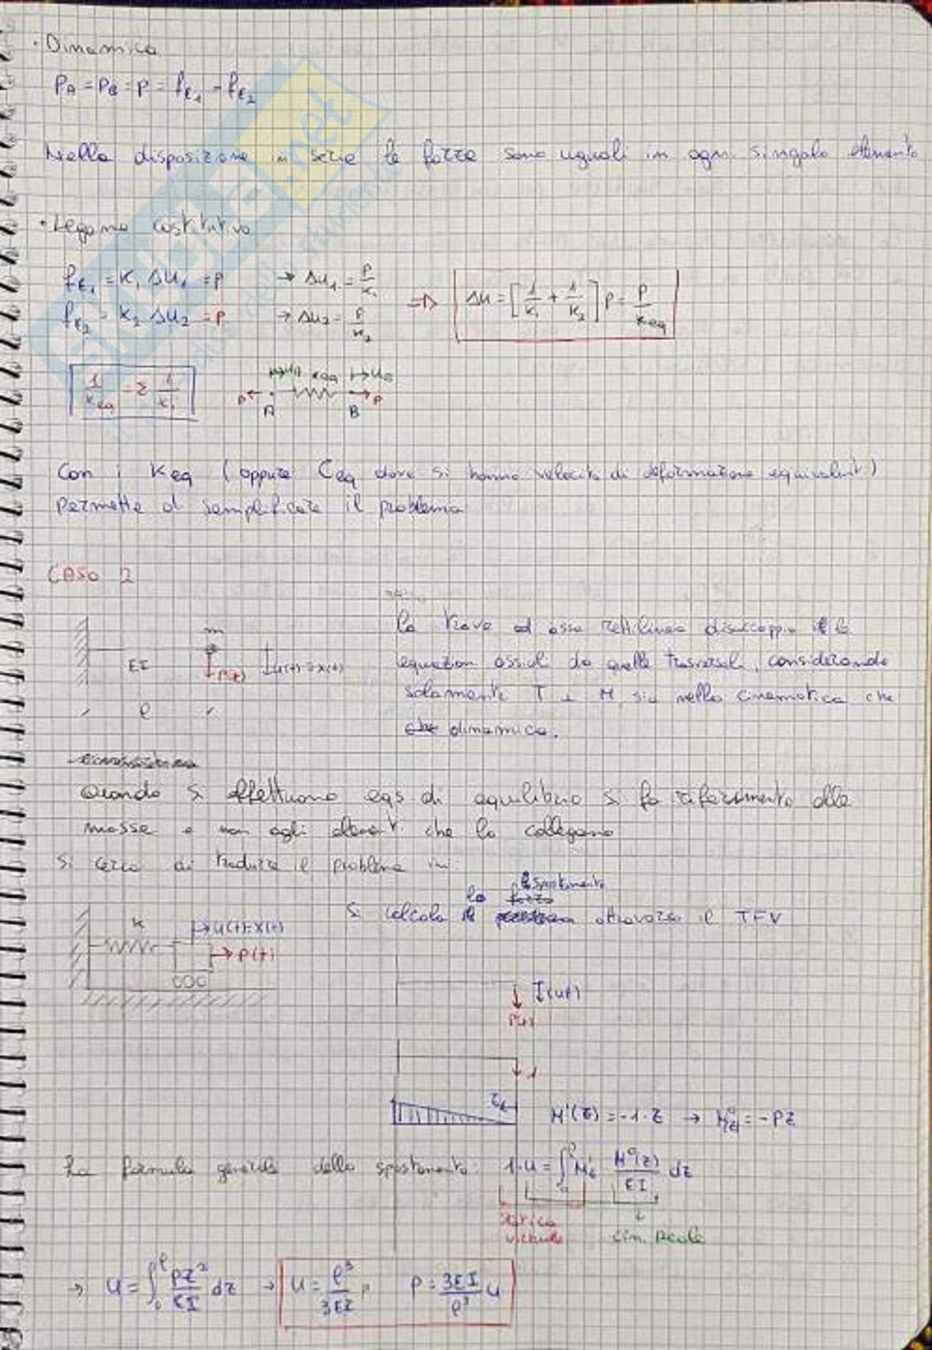 · Dinamica
PA = PB = P = fE1 = fE2
Nella disposizione in serie le forze sono uguali in ogni singolo elemento
· Legame costitutivo
fE1 = K1 Δu1 = P → Δu1 = P/K1
fE2 = K2 Δu2 = P → Δu2 = P/K2
⇒ Δu = [1/K1 + 1/K2] P = P/Keq
1/Keq = Σ 1/Ki
P A Keq B P
Con i Keq (oppure Ceq dove si hanno velocità di deformazione equivalenti)
permette di semplificare il problema
CASO 2
m
EI P(t) u(t) = x(t)
l
la trave ad asse rettilineo disaccoppia le
equazioni assiali da quelle trasversali, considerando
solamente T e M, sia nella cinematica che
dinamica.
Quando si effettuano eqs di equilibrio si fa riferimento alle
masse e non agli elementi che la collegano
Si cerca di tradurre il problema in:
lo spostamento
Si calcola attraverso il TFV
K u(t)=x(t)
P(t)
u(t)
P(t)
1
z
M'(z) = -1·z → M°(z) = -Pz
La formula generale dello spostamento: 1·u = ∫₀ˡ M' M°(z)/EI dz
carica
virtuale cin. Reale
→ u = ∫₀ˡ Pz²/EI dz → u = l³/3EI P P = 3EI/l³ u